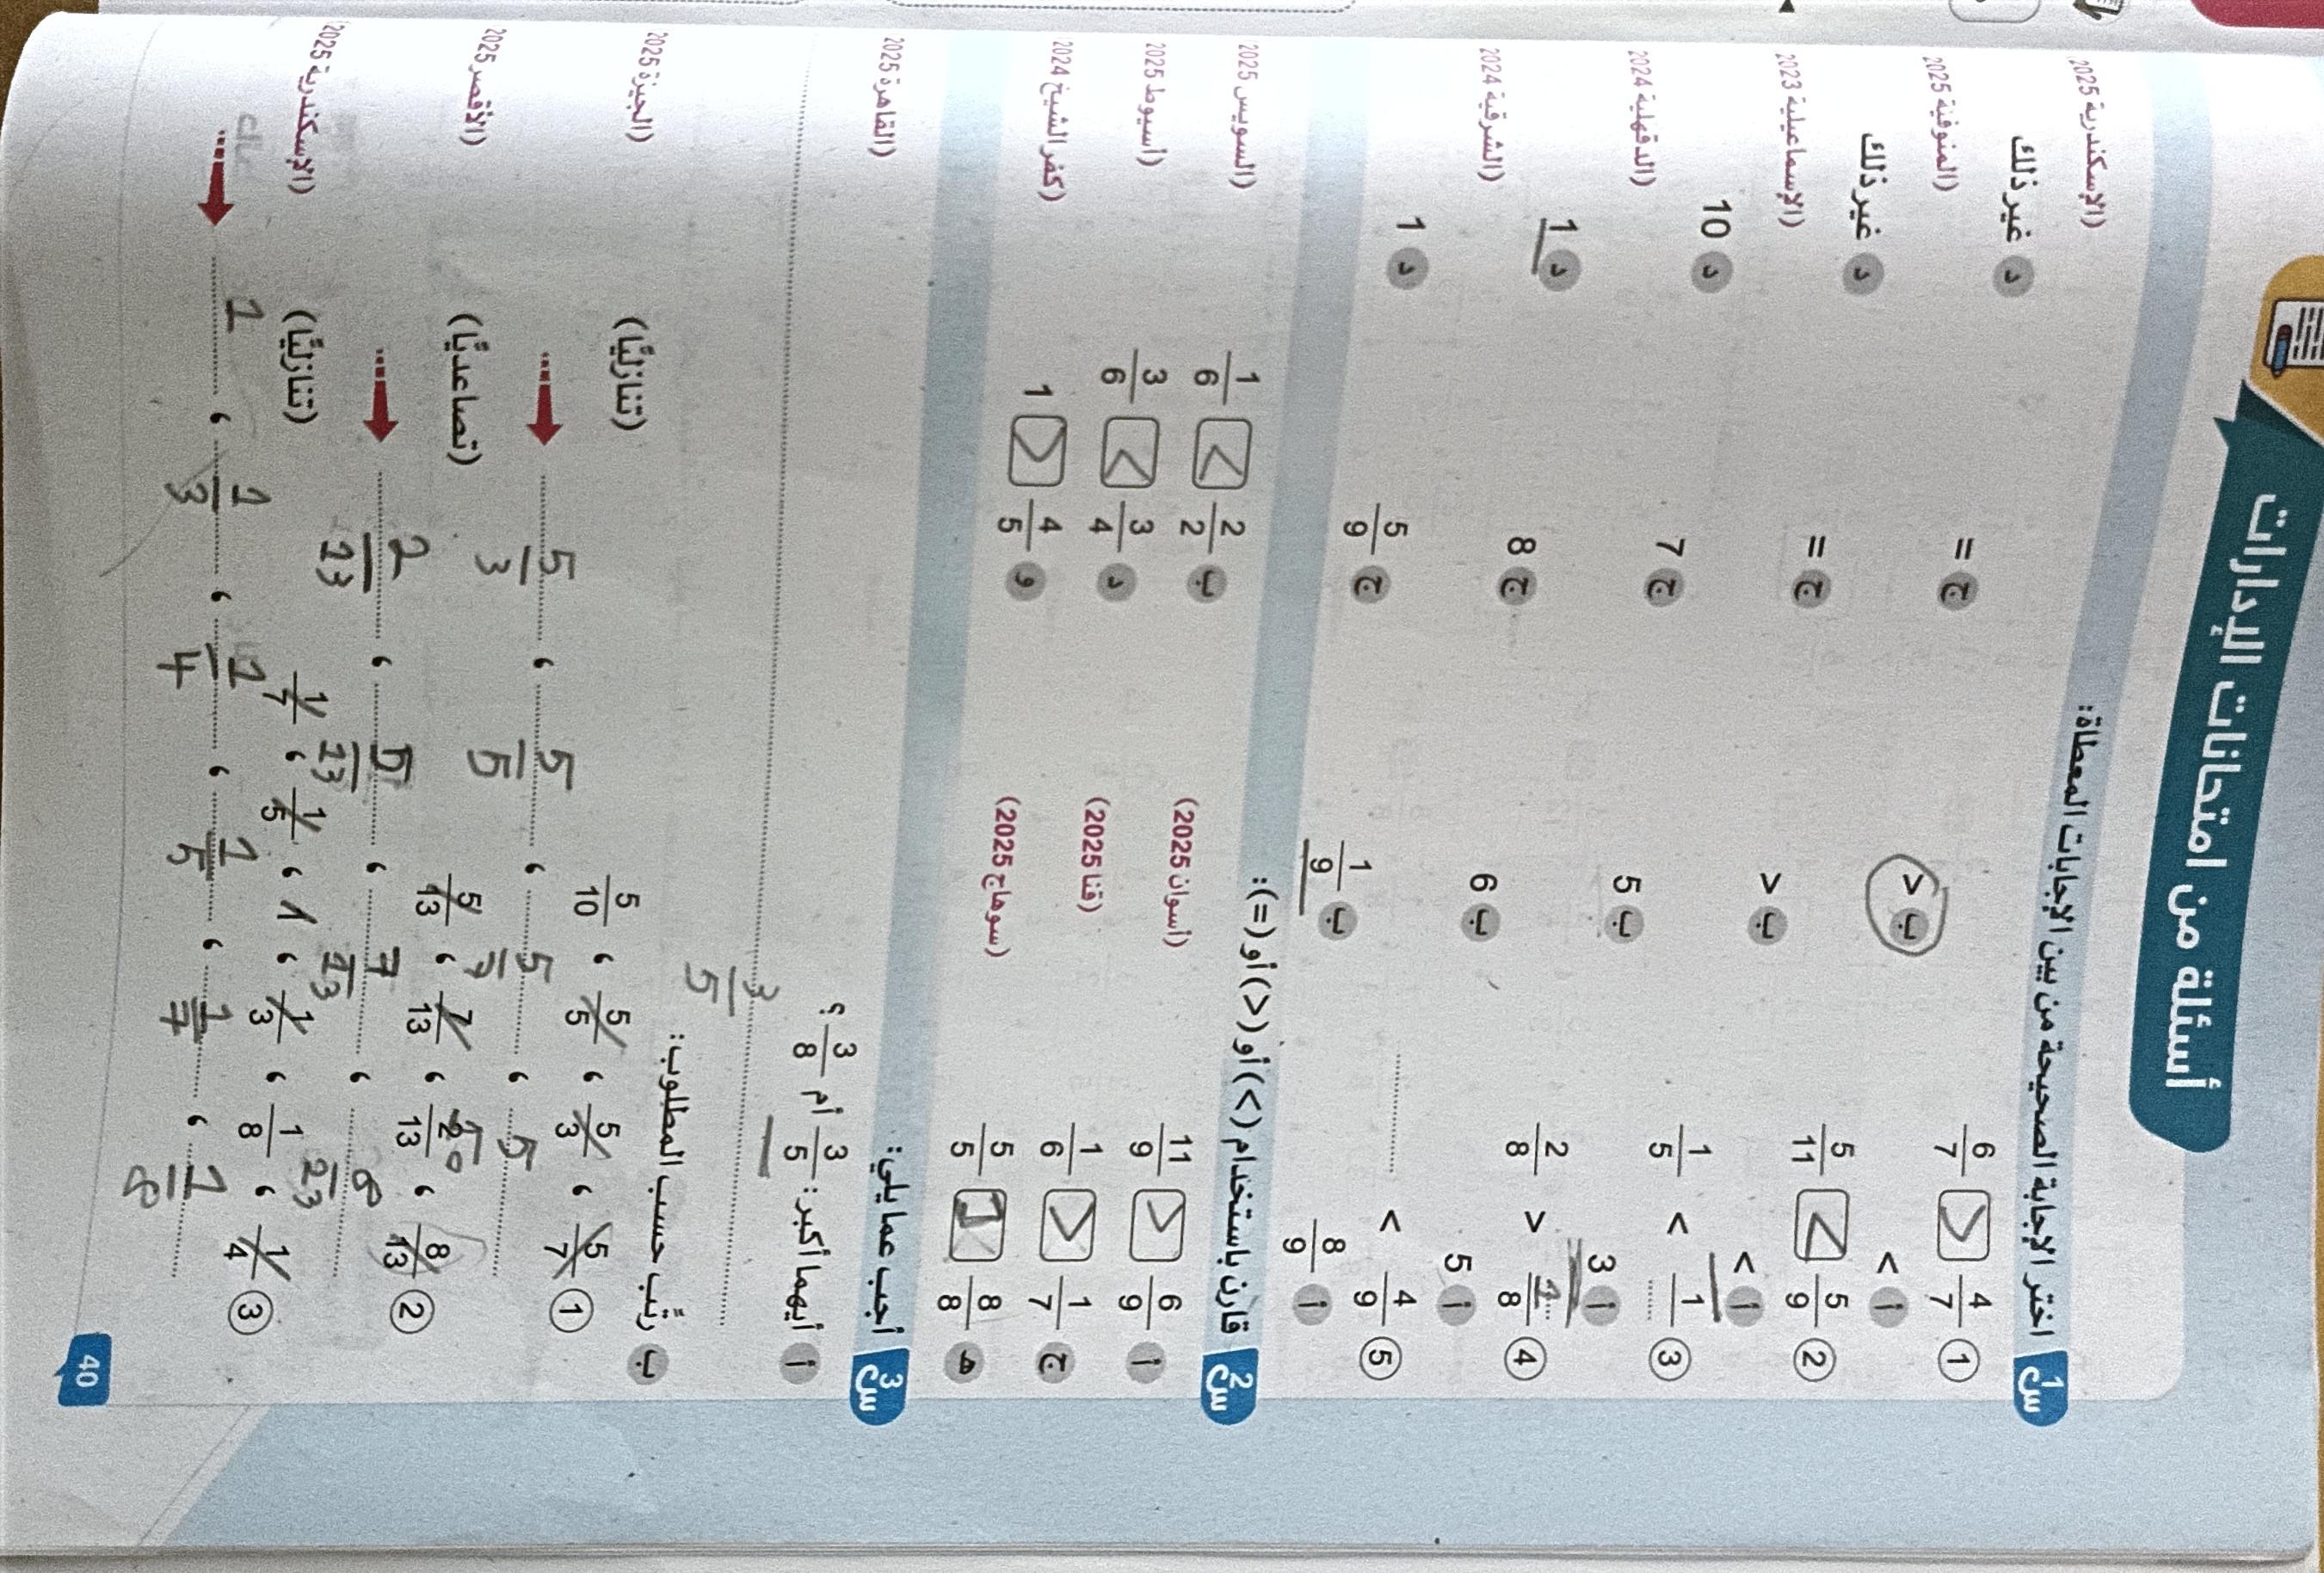 أسئلة من امتحانات الإدارات
س1 اختر الإجابة الصحيحة من بين الإجابات المعطاة:
① 6/7 > 4/7 (الإسكندرية 2025
أ < ب > ج = د غير ذلك
② 5/11 < 5/9 (المنوفية 2025
أ < ب > ج = د غير ذلك
③ 1/5 < 1/...... (الإسماعيلية 2023
أ 3 ب 5 ج 7 د 10
④ 2/8 > 1/8 (الدقهلية 2024
أ 5 ب 6 ج 8 د 1
⑤ ............ < 4/9 (الشرقية 2024
أ 8/9 ب 1/9 ج 5/9 د 1
س2 قارن باستخدام (<) أو (>) أو (=):
أ 11/9 > 6/9 (أسوان 2025) ب 1/6 < 2/2 (السويس 2025
ج 1/6 > 1/7 (قنا 2025) د 3/6 < 3/4 (أسيوط 2025
ه 5/5 = 8/8 (سوهاج 2025) و 1 > 4/5 (كفر الشيخ 2024
س3 أجب عما يلي:
أ أيهما أكبر: 3/5 أم 3/8 ؟ (القاهرة 2025
3/5
ب رتِّب حسب المطلوب: (الجيزة 2025
① 5/7 ، 5/3 ، 5/5 ، 5/10 (تنازليًّا)
5/3 ، 5/5 ، 5/7 ، 5/10
② 8/13 ، 2/13 ، 7/13 ، 5/13 (تصاعديًّا) (الأقصر 2025
2/13 ، 5/13 ، 7/13 ، 8/13
③ 1/4 ، 1/8 ، 1/3 ، 1 ، 1/5 ، 1/7 (تنازليًّا) (الإسكندرية 2025
1 ، 1/3 ، 1/4 ، 1/5 ، 1/7 ، 1/8
40